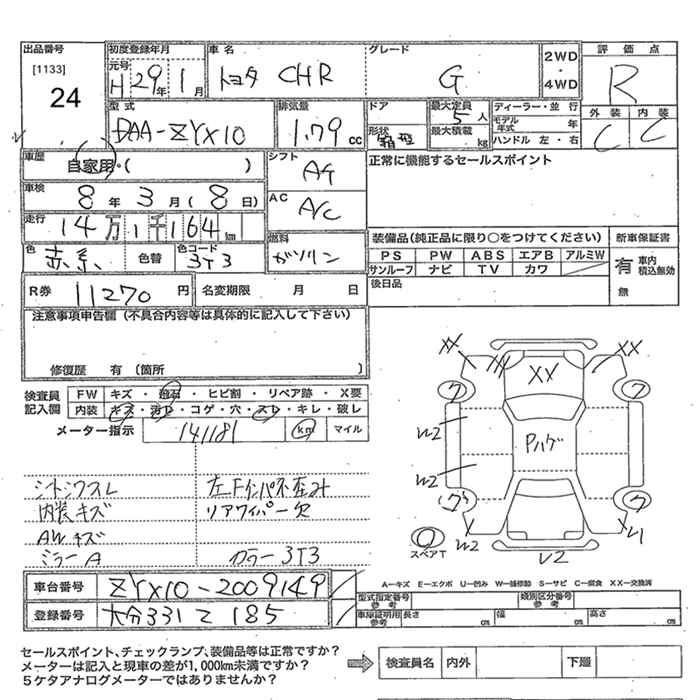 出品番号 初度登録年月 車名 グレード 2WD・4WD 評価点
[1133] 元号 H 29年 1月 トヨタ CHR G R
24 型式 排気量 ドア 最大定員 5人 ディーラー・並行 外装 内装
DAA-ZYX10 1.79 cc 形状 箱型 最大積載 kg モデル年式 年 C C
ハンドル 左・右
車歴 自家用・( ) シフト AT 正常に機能するセールスポイント
車検 8年 3月 (8日) AC A/C
走行 14万1千164km 燃料 ガソリン 装備品(純正品に限り○をつけてください) 新車保証書
色 赤系 色替 色コード 3T3 PS PW ABS エアB アルミW 有 車内 積込無効
サンルーフ ナビ TV カワ
R券 11270円 名変期限 月 日 後日品 無
注意事項申告欄(不具合内容等は具体的に記入して下さい)
修復歴 有〔箇所 〕
検査員記入欄 FW キズ・飛石・ヒビ割・リペア跡・X要
内装 キズ・汚レ・コゲ・穴・スレ・キレ・破レ
メーター指示 141181 km マイル
XX XX
XX
ワ ワ
W2 Pハゲ
W2
ワ ワ
ワ W2 V2 U1
スペアT
シートシワスレ 左Fインパネ歪み
内装キズ リアワイパー欠
AWキズ
ミラーA カラー3T3
A-キズ E-エクボ U-凹み W-補修跡 S-サビ C-腐食 XX-交換済
車台番号 ZYX10-2009149 型式指定番号 参考 類別区分番号 参考
登録番号 大分331て185 車庫証明用 参考 長さ cm 幅 cm 高さ cm
セールスポイント、チェックランプ、装備品等は正常ですか?
メーターは記入と現車の差が1,000km未満ですか?
5ケタアナログメーターではありませんか?
検査員名 内外 下廻